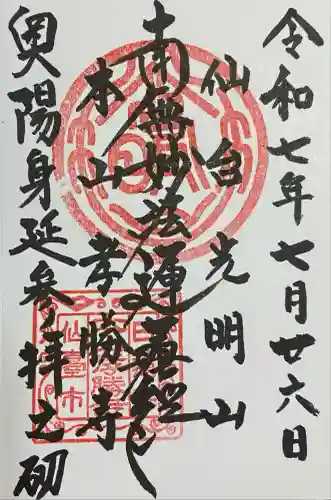 令和七年七月廿六日
仙台 光明山
南無妙法蓮華経
本山 孝勝寺
奥陽身延参拝之砌